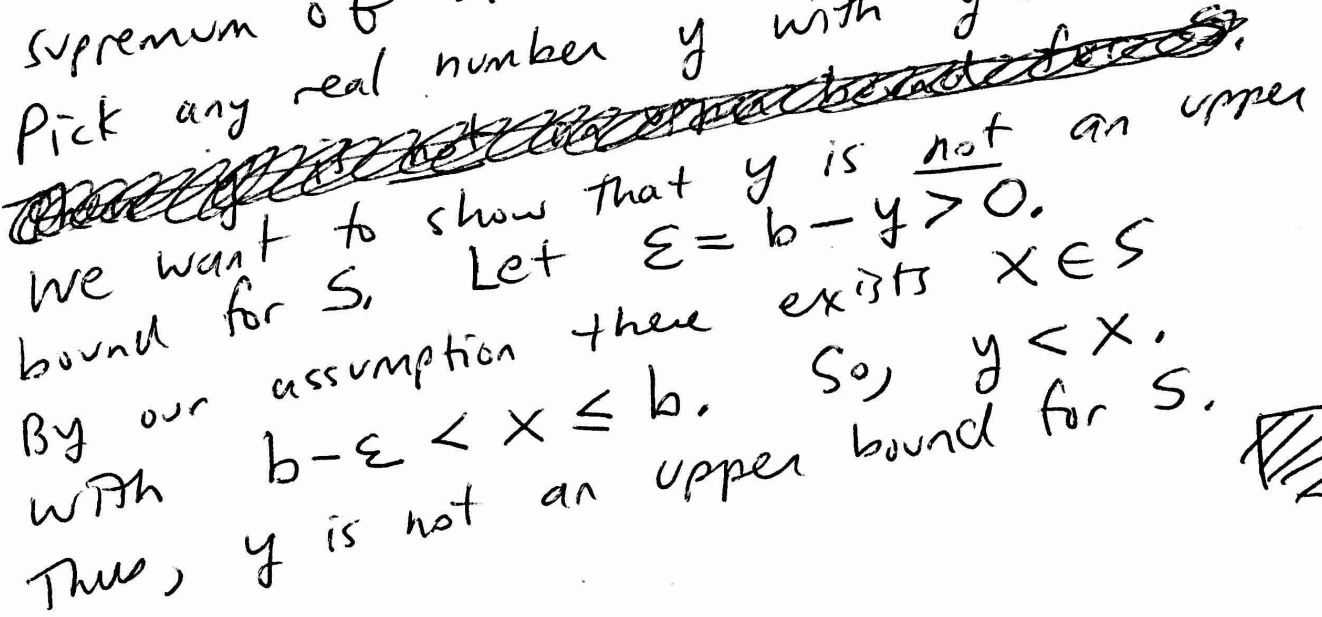 supremum of
Pick any real number y with y
We want to show that y is not an upper
bound for S. Let ε = b - y > 0.
By our assumption there exists x ∈ S
with b - ε < x ≤ b. So, y < x.
Thus, y is not an upper bound for S.